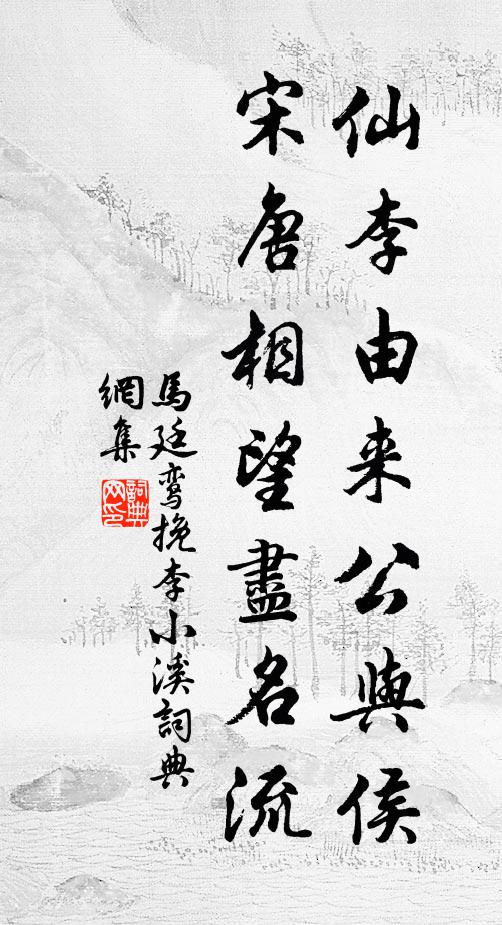 仙李由来公與侯
宋唐相望盡名流
馬廷鸾挽李小溪詞典
網集
詞典
网印